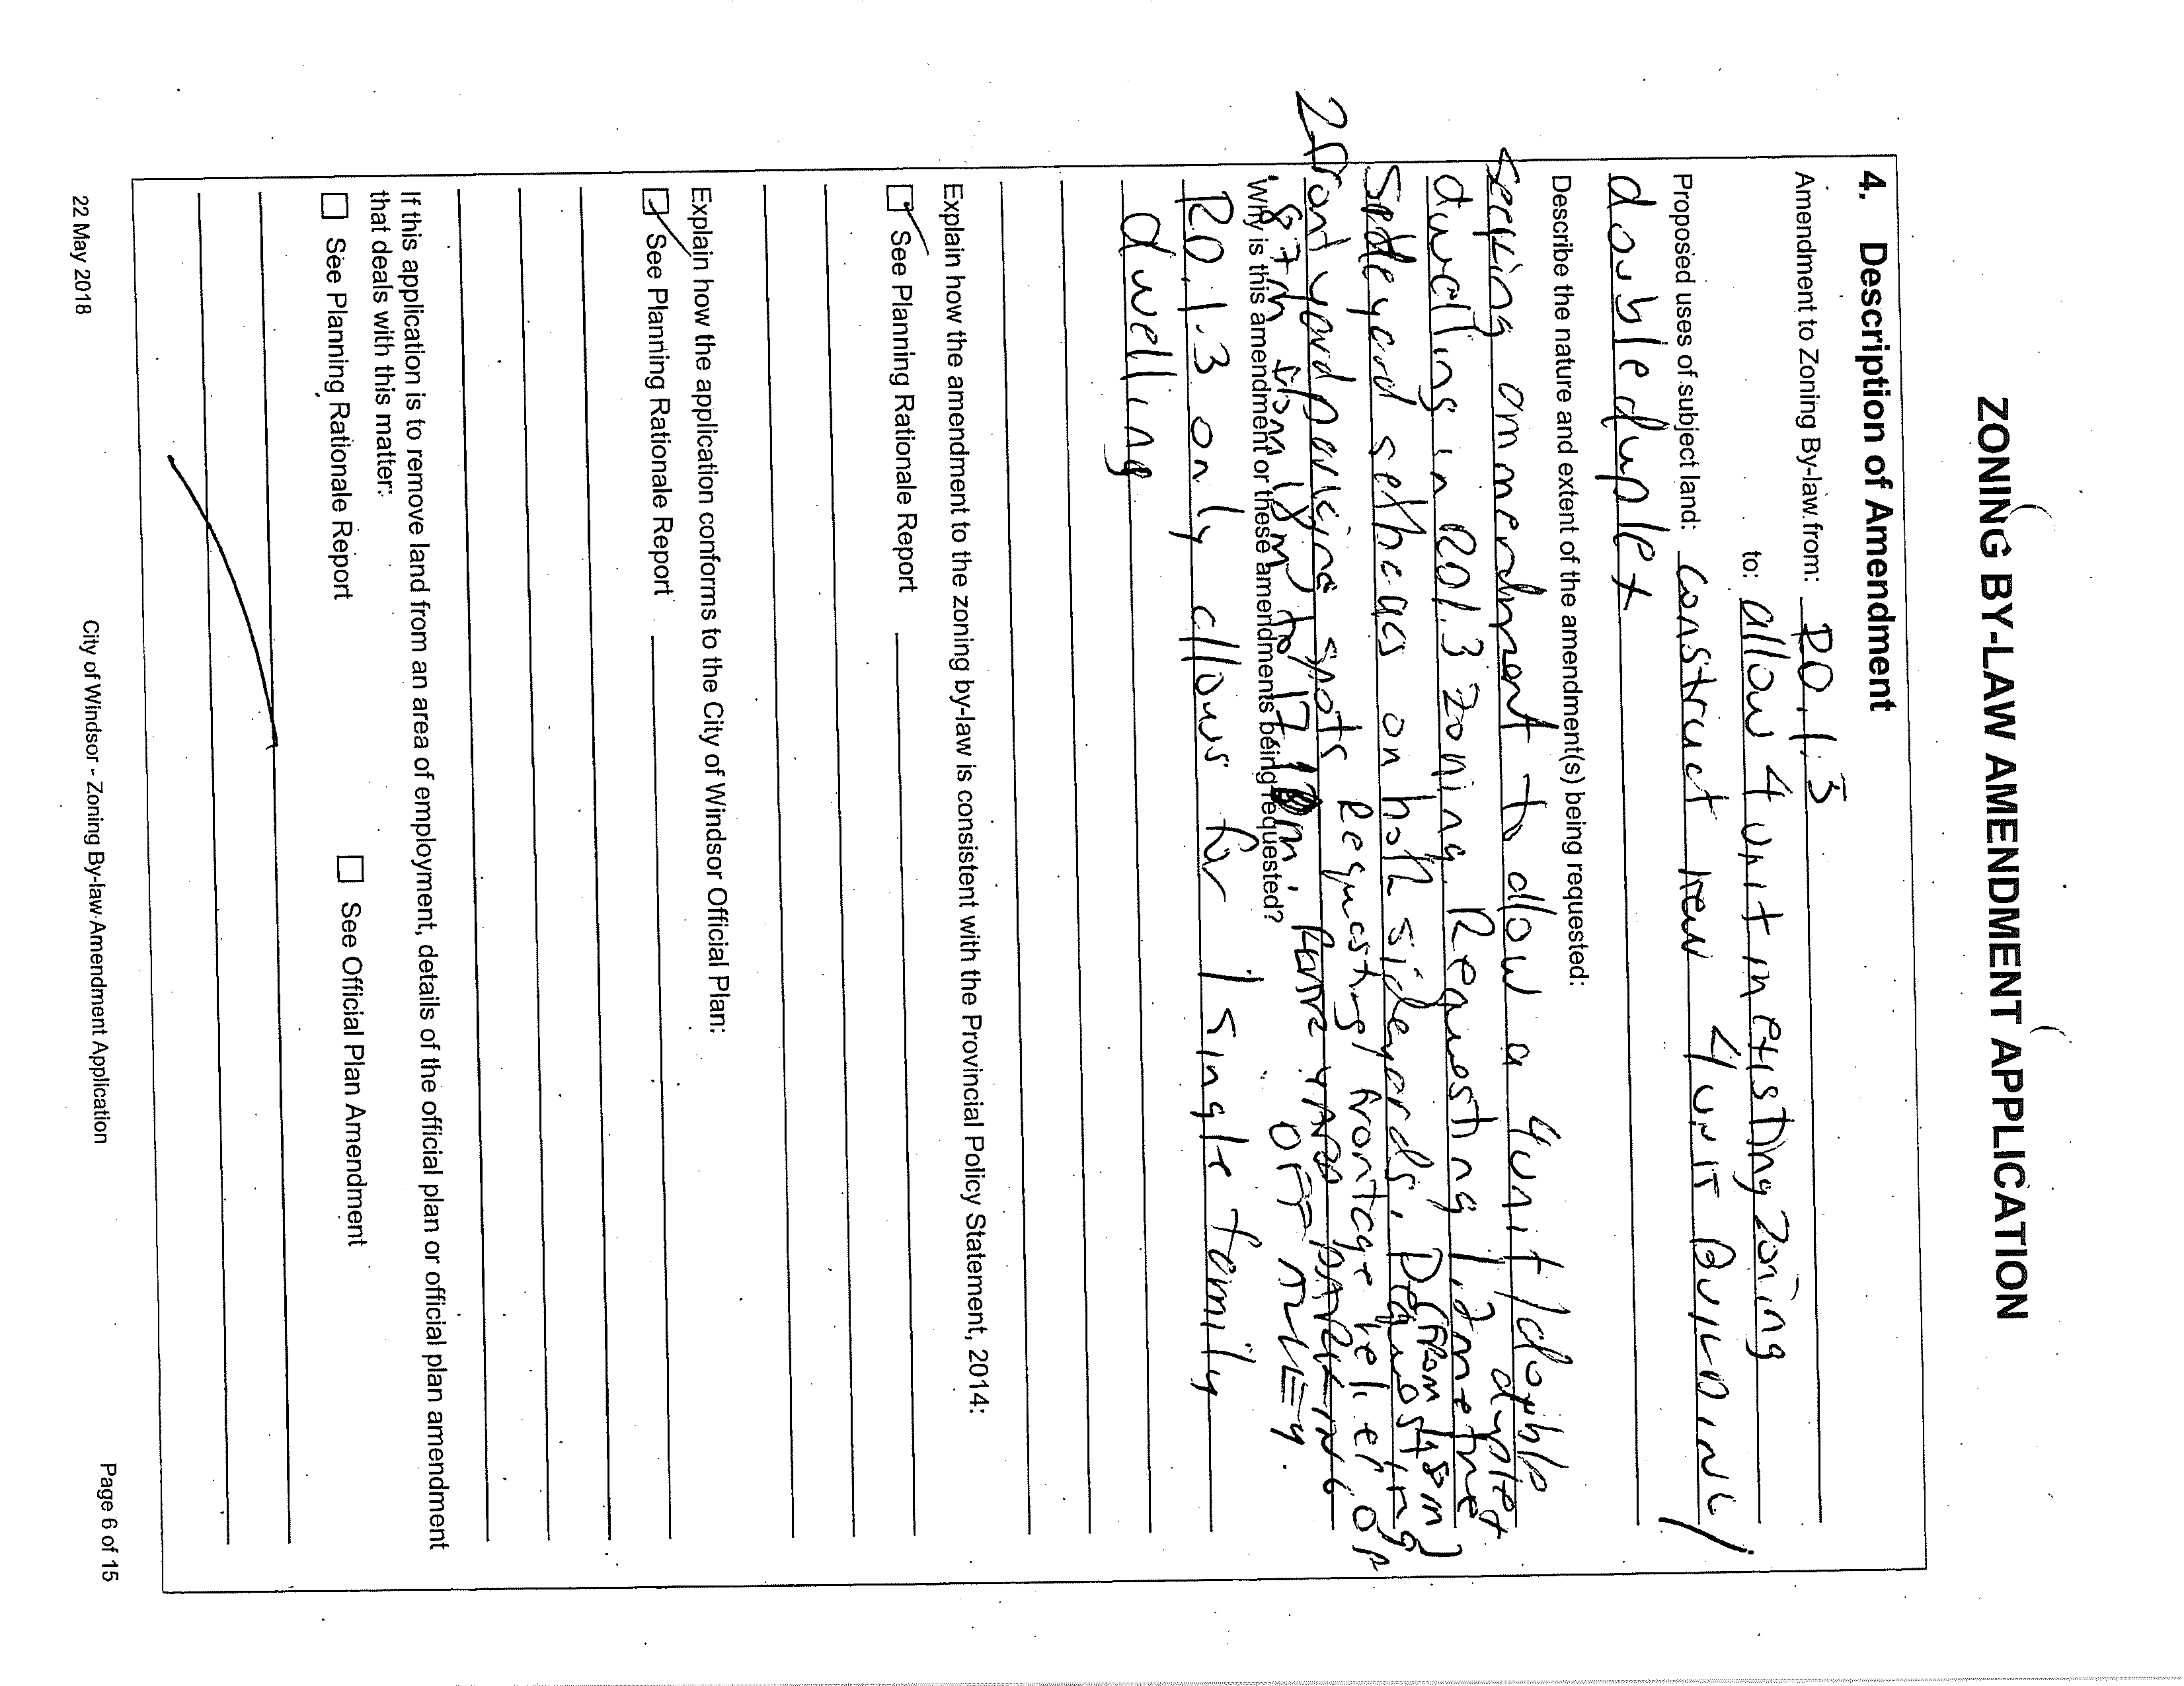 ZONING BY-LAW AMENDMENT APPLICATION
4. Description of Amendment
Amendment to Zoning By-law from: RD.1.3
to: allow 4 unit in existing zoning
Proposed uses of subject land: Construct new 4 UNIT BUILDING/
double duplex
Describe the nature and extent of the amendment(s) being requested:
Seeking ammendment to allow a 4 unit/double duplex
dwelling in RD1.3 zoning. Requesting 1.2metre (from 1.8m)
Side yard setbacks on both sideyards. Requesting
2 front yard parking spots Requesting frontage relief of
.87m from 18m to 17. m. Rear yard parking
OFF ALLEY.
Why is this amendment or these amendments being requested?
RD.1.3 only allows for 1 single family
dwelling
Explain how the amendment to the zoning by-law is consistent with the Provincial Policy Statement, 2014:
See Planning Rationale Report
Explain how the application conforms to the City of Windsor Official Plan:
See Planning Rationale Report
If this application is to remove land from an area of employment, details of the official plan or official plan amendment
that deals with this matter:
See Planning Rationale Report See Official Plan Amendment
22 May 2018 City of Windsor - Zoning By-law Amendment Application Page 6 of 15